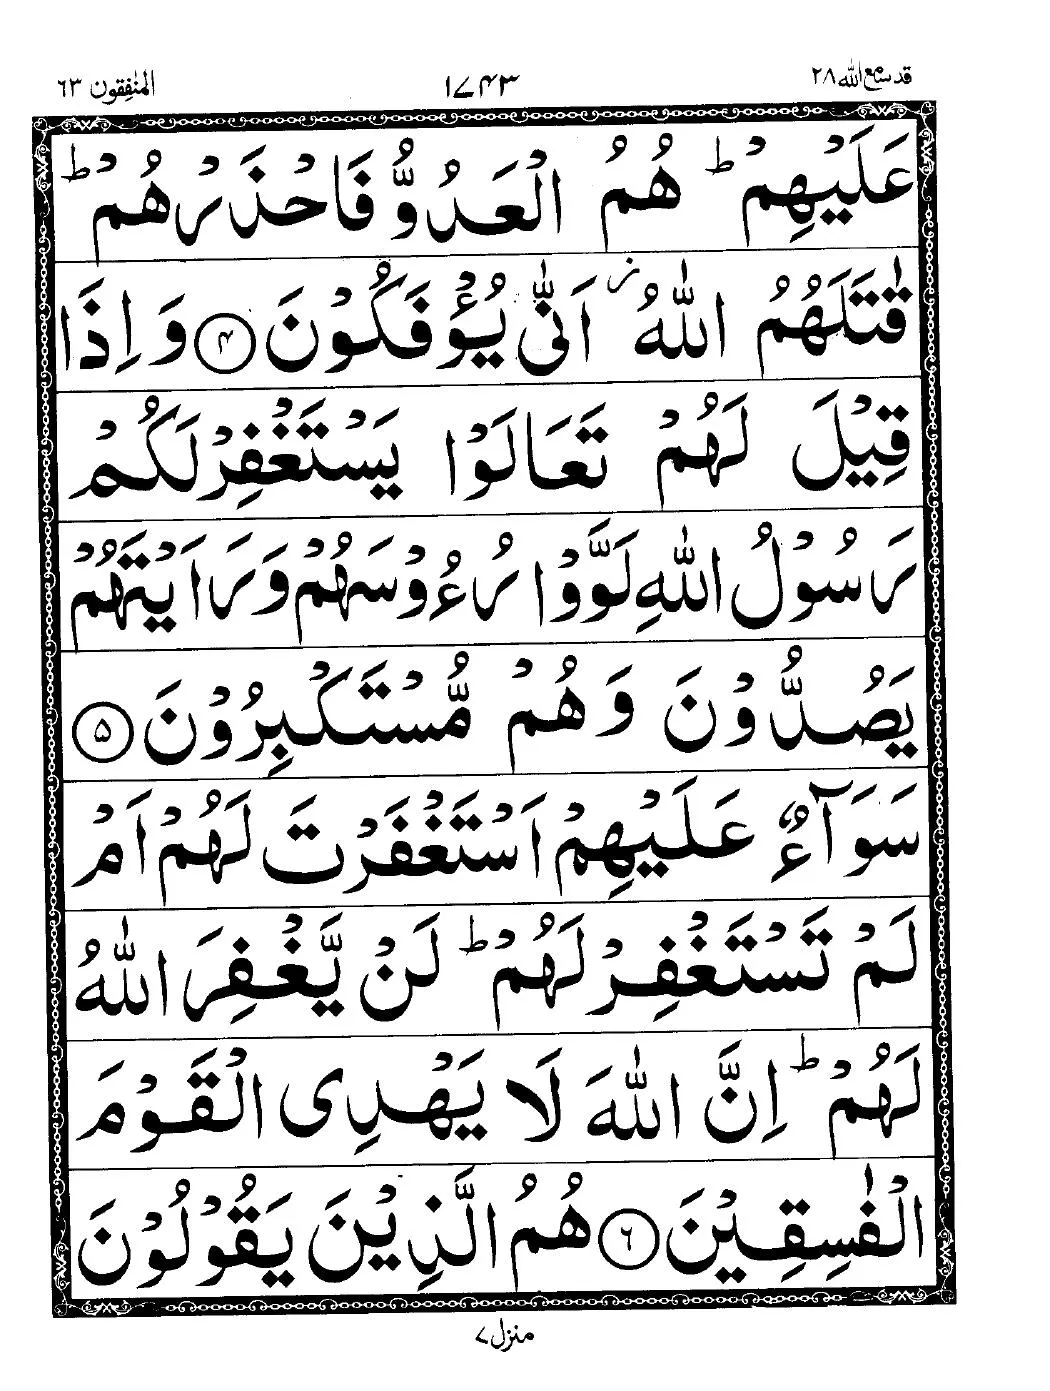 قد سمع الله ۲۸
۱۷۴۳
المنٰفِقون ۶۳
عَلَيْهِمْ ؕ هُمُ الْعَدُوُّ فَاحْذَرْهُمْ ؕ
قٰتَلَهُمُ اللّٰهُ ز اَنّٰى يُؤْفَكُوْنَ ﴿۴﴾ وَ اِذَا
قِيْلَ لَهُمْ تَعَالَوْا يَسْتَغْفِرْ لَكُمْ
رَسُوْلُ اللّٰهِ لَوَّوْا رُءُوْسَهُمْ وَ رَاَيْتَهُمْ
يَصُدُّوْنَ وَ هُمْ مُّسْتَكْبِرُوْنَ ﴿۵﴾
سَوَآءٌ عَلَيْهِمْ اَسْتَغْفَرْتَ لَهُمْ اَمْ
لَمْ تَسْتَغْفِرْ لَهُمْ ؕ لَنْ يَّغْفِرَ اللّٰهُ
لَهُمْ ؕ اِنَّ اللّٰهَ لَا يَهْدِى الْقَوْمَ
الْفٰسِقِيْنَ ﴿۶﴾ هُمُ الَّذِيْنَ يَقُوْلُوْنَ
منزل ۷